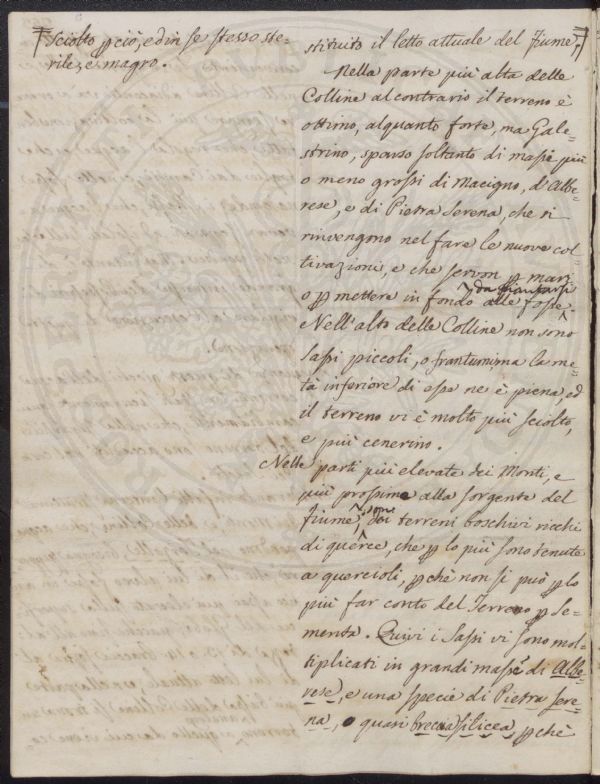 sciolto p ciò, ed in se stesso ste=
rile, e magro.
stituito il letto attuale del fiume,
Nella parte più alta delle
Colline al contrario il terreno è
ottimo, alquanto forte, ma Gale=
strino, sparso soltanto di massi più
o meno grossi di Macigno, d'Albe=
rese, e di Pietra Serena, che si
rinvengono nel fare le nuove col=
tivazioni, e che servon p muri
o p mettere in fondo alle fosse
da piantarsi
Nell'alto delle Colline non sono
sassi piccoli, o frantumi ma la me=
tà inferiore di esse ne è piena, ed
il terreno vi è molto più sciolto,
e più cenerino.
Nelle parti più elevate dei Monti, e
più prossime alla sorgente del
fiume, sono dei terreni boschivi ricchi
di querce, che p lo più sono tenute
a quercioli, p chè non si può p lo
più far conto del Terreno p Se=
menta. Quivi i Sassi vi sono mol=
tiplicati in grandi massi di Albe=
rese, e una specie di Pietra sere=
na, o quasi breccia silicea, p chè